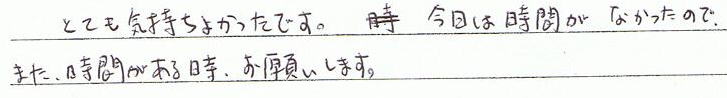 とても気持ちよかったです。 今日は時間がなかったので、
また、時間がある時、お願いします。